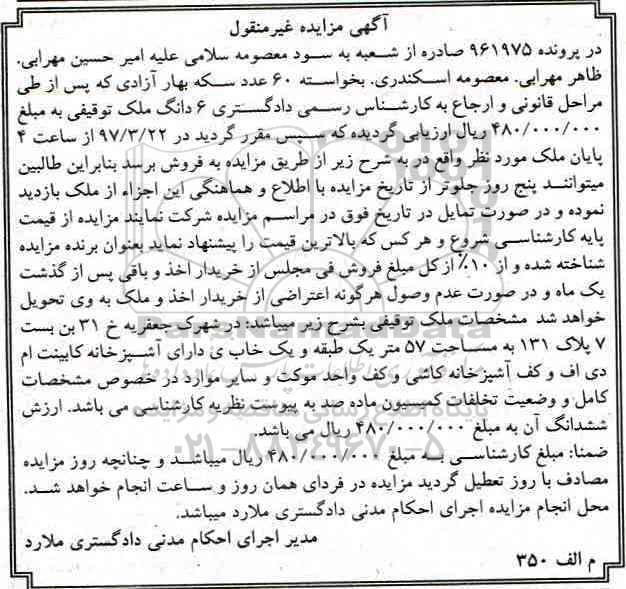 آگهی مزایده غیرمنقول
در پرونده ۹۶۱۹۷۵ صادره از شعبه به سود معصومه سلامی علیه امیر حسین مهرابی.
ظاهر مهرابی. معصومه اسکندری. بخواسته ۶۰ عدد سکه بهار آزادی که پس از طی
مراحل قانونی و ارجاع به کارشناس رسمی دادگستری ۶ دانگ ملک توقیفی به مبلغ
۴۸۰/۰۰۰/۰۰۰ ریال ارزیابی گردیده که سپس مقرر گردید در ۹۷/۳/۲۲ از ساعت ۴
پایان ملک مورد نظر واقع در به شرح زیر از طریق مزایده به فروش برسد بنابراین طالبین
میتوانند پنج روز جلوتر از تاریخ مزایده با اطلاع و هماهنگی این اجراء از ملک بازدید
نموده و در صورت تمایل در تاریخ فوق در مراسم مزایده شرکت نمایند مزایده از قیمت
پایه کارشناسی شروع و هر کس که بالاترین قیمت را پیشنهاد نماید بعنوان برنده مزایده
شناخته شده و از ۱۰٪ از کل مبلغ فروش فی مجلس از خریدار اخذ و باقی پس از گذشت
یک ماه و در صورت عدم وصول هرگونه اعتراضی از خریدار اخذ و ملک به وی تحویل
خواهد شد مشخصات ملک توقیفی بشرح زیر میباشد: در شهرک جعفریه خ ۳۱ بن بست
۷ پلاک ۱۳۱ به مساحت ۵۷ متر یک طبقه و یک خاب ی دارای آشپزخانه کابینت ام
دی اف و کف آشپزخانه کاشی و کف واحد موکت و سایر موارد در خصوص مشخصات
کامل و وضعیت تخلفات کمیسیون ماده صد به پیوست نظریه کارشناسی می باشد. ارزش
ششدانگ آن به مبلغ ۴۸۰/۰۰۰/۰۰۰ ریال می باشد.
ضمنا: مبلغ کارشناسی به مبلغ ۴۸۰/۰۰۰/۰۰۰ ریال میباشد و چنانچه روز مزایده
مصادف با روز تعطیل گردید مزایده در فردای همان روز و ساعت انجام خواهد شد.
محل انجام مزایده اجرای احکام مدنی دادگستری ملارد میباشد.
مدیر اجرای احکام مدنی دادگستری ملارد
م الف ۳۵۰
ParsNamadData
۰۲۱-۸۸۳۴۹۶۷۰-۵